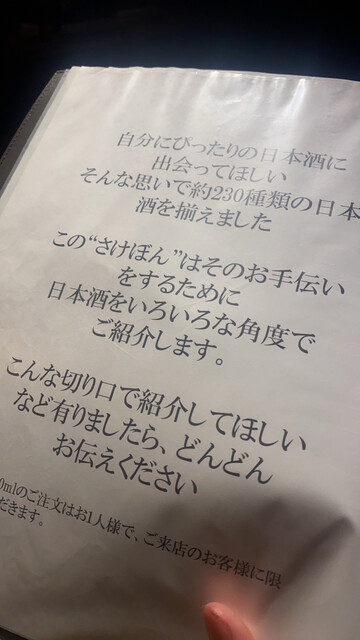 自分にぴったりの日本酒に
出会ってほしい
そんな思いで約230種類の日本
酒を揃えました
この“さけぼん”はそのお手伝い
をするために
日本酒をいろいろな角度で
ご紹介します。
こんな切り口で紹介してほしい
など有りましたら、どんどん
お伝えください
0mlのご注文はお1人様で、ご来店のお客様に限
だきます。